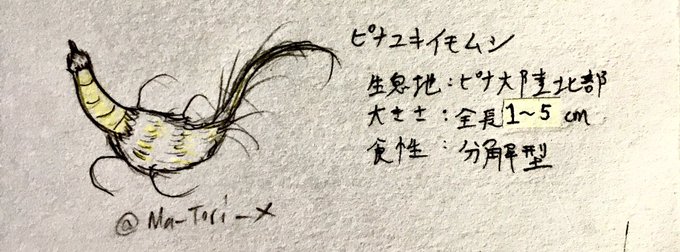 ピナユキイモムシ
生息地:ピナ大陸北部
大きさ:全長1~5cm
食性:分解型
@Ma_Tori_X